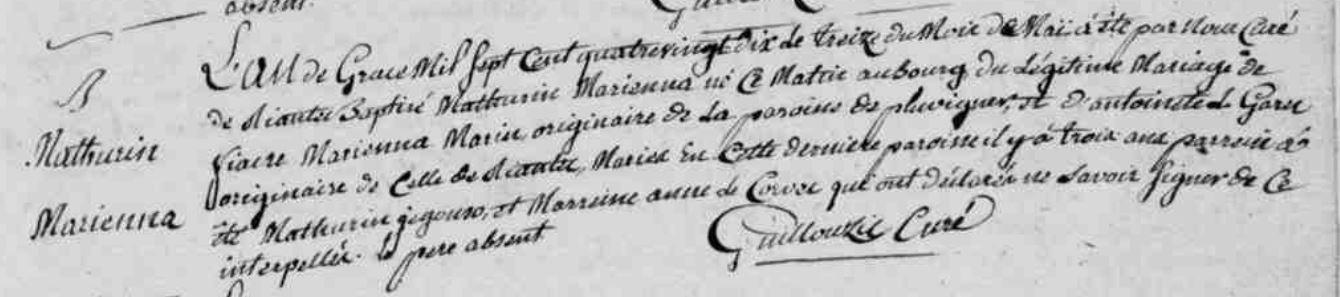 absent.
B
Mathurin
Marienna
L'an de Grace Mil Sept Cent quatrevingt dix le treize du Mois de Mai à été par Nous Curé
de Riantec Baptisé Mathurin Marienna né Ce Matin au bourg du Légitime Mariage de
fiacre Marienna Marin, originaire de La paroisse de pluvigner, et d'antoinette Le Garec
originaire de Celle de Riantec, Mariés En Cette derniere paroisse il y à trois ans parrein à
été Mathurin jegouso, et Marreine anne Le Corvec qui ont déclarés ne Savoir Signer de Ce
interpellés. le pere absent
Guillouzic Curé